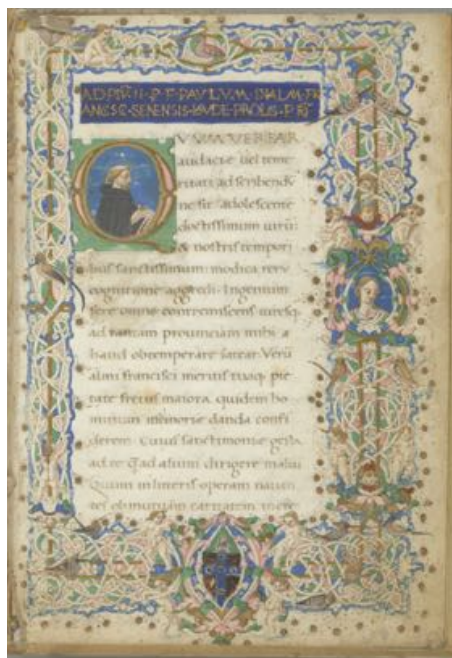 AD PR̄M·N·P·T·PAVLVM·IN ALM·FR
ANCSC·SENENSIS·LAVDE·PROLIS·P
VVM VEREAR
audacie uel teme
ritati ad scribendū
ne sit adolescente
doctissimum uirū:
& nostris tempori
bus sanctissimum: modica reru
cognitione aggredi. Ingenium
fere omne contremiscens
ad tantam prouinciam mihi a
haud obtemperare fatear. Verū
almi francisci meritis tuaq; pie
tate fretus maiora quidem ho
minum memorie danda confi
derem. Cuius sanctimonie gesta
ad te dirigere malui
Quum in litteris operam naua
ob mutuam caritatem